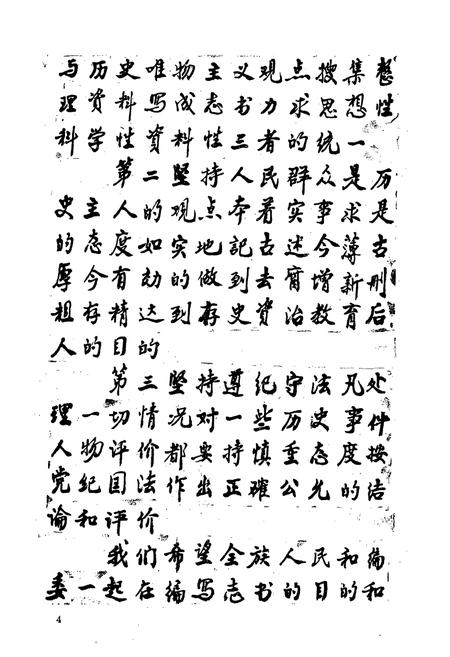 与历史唯物主义观点搜集整
理资料写成志书力求思想性
科学性资料性三者的统一
第二坚持人民群众是历
史主人的观点本着实事求是
的态度如实地記述古今薄古
厚今有劾的做到去甯增新删
粗存精达到存史资治教育后
人的目的
第三坚持遵纪守法凡处
理一切情况对一些历史事件
人物评价都要持慎重态度按
党纪国法作出正確公允的结
论和评价
我们希望全族人民和编
委一起在编写志书的目的和
4